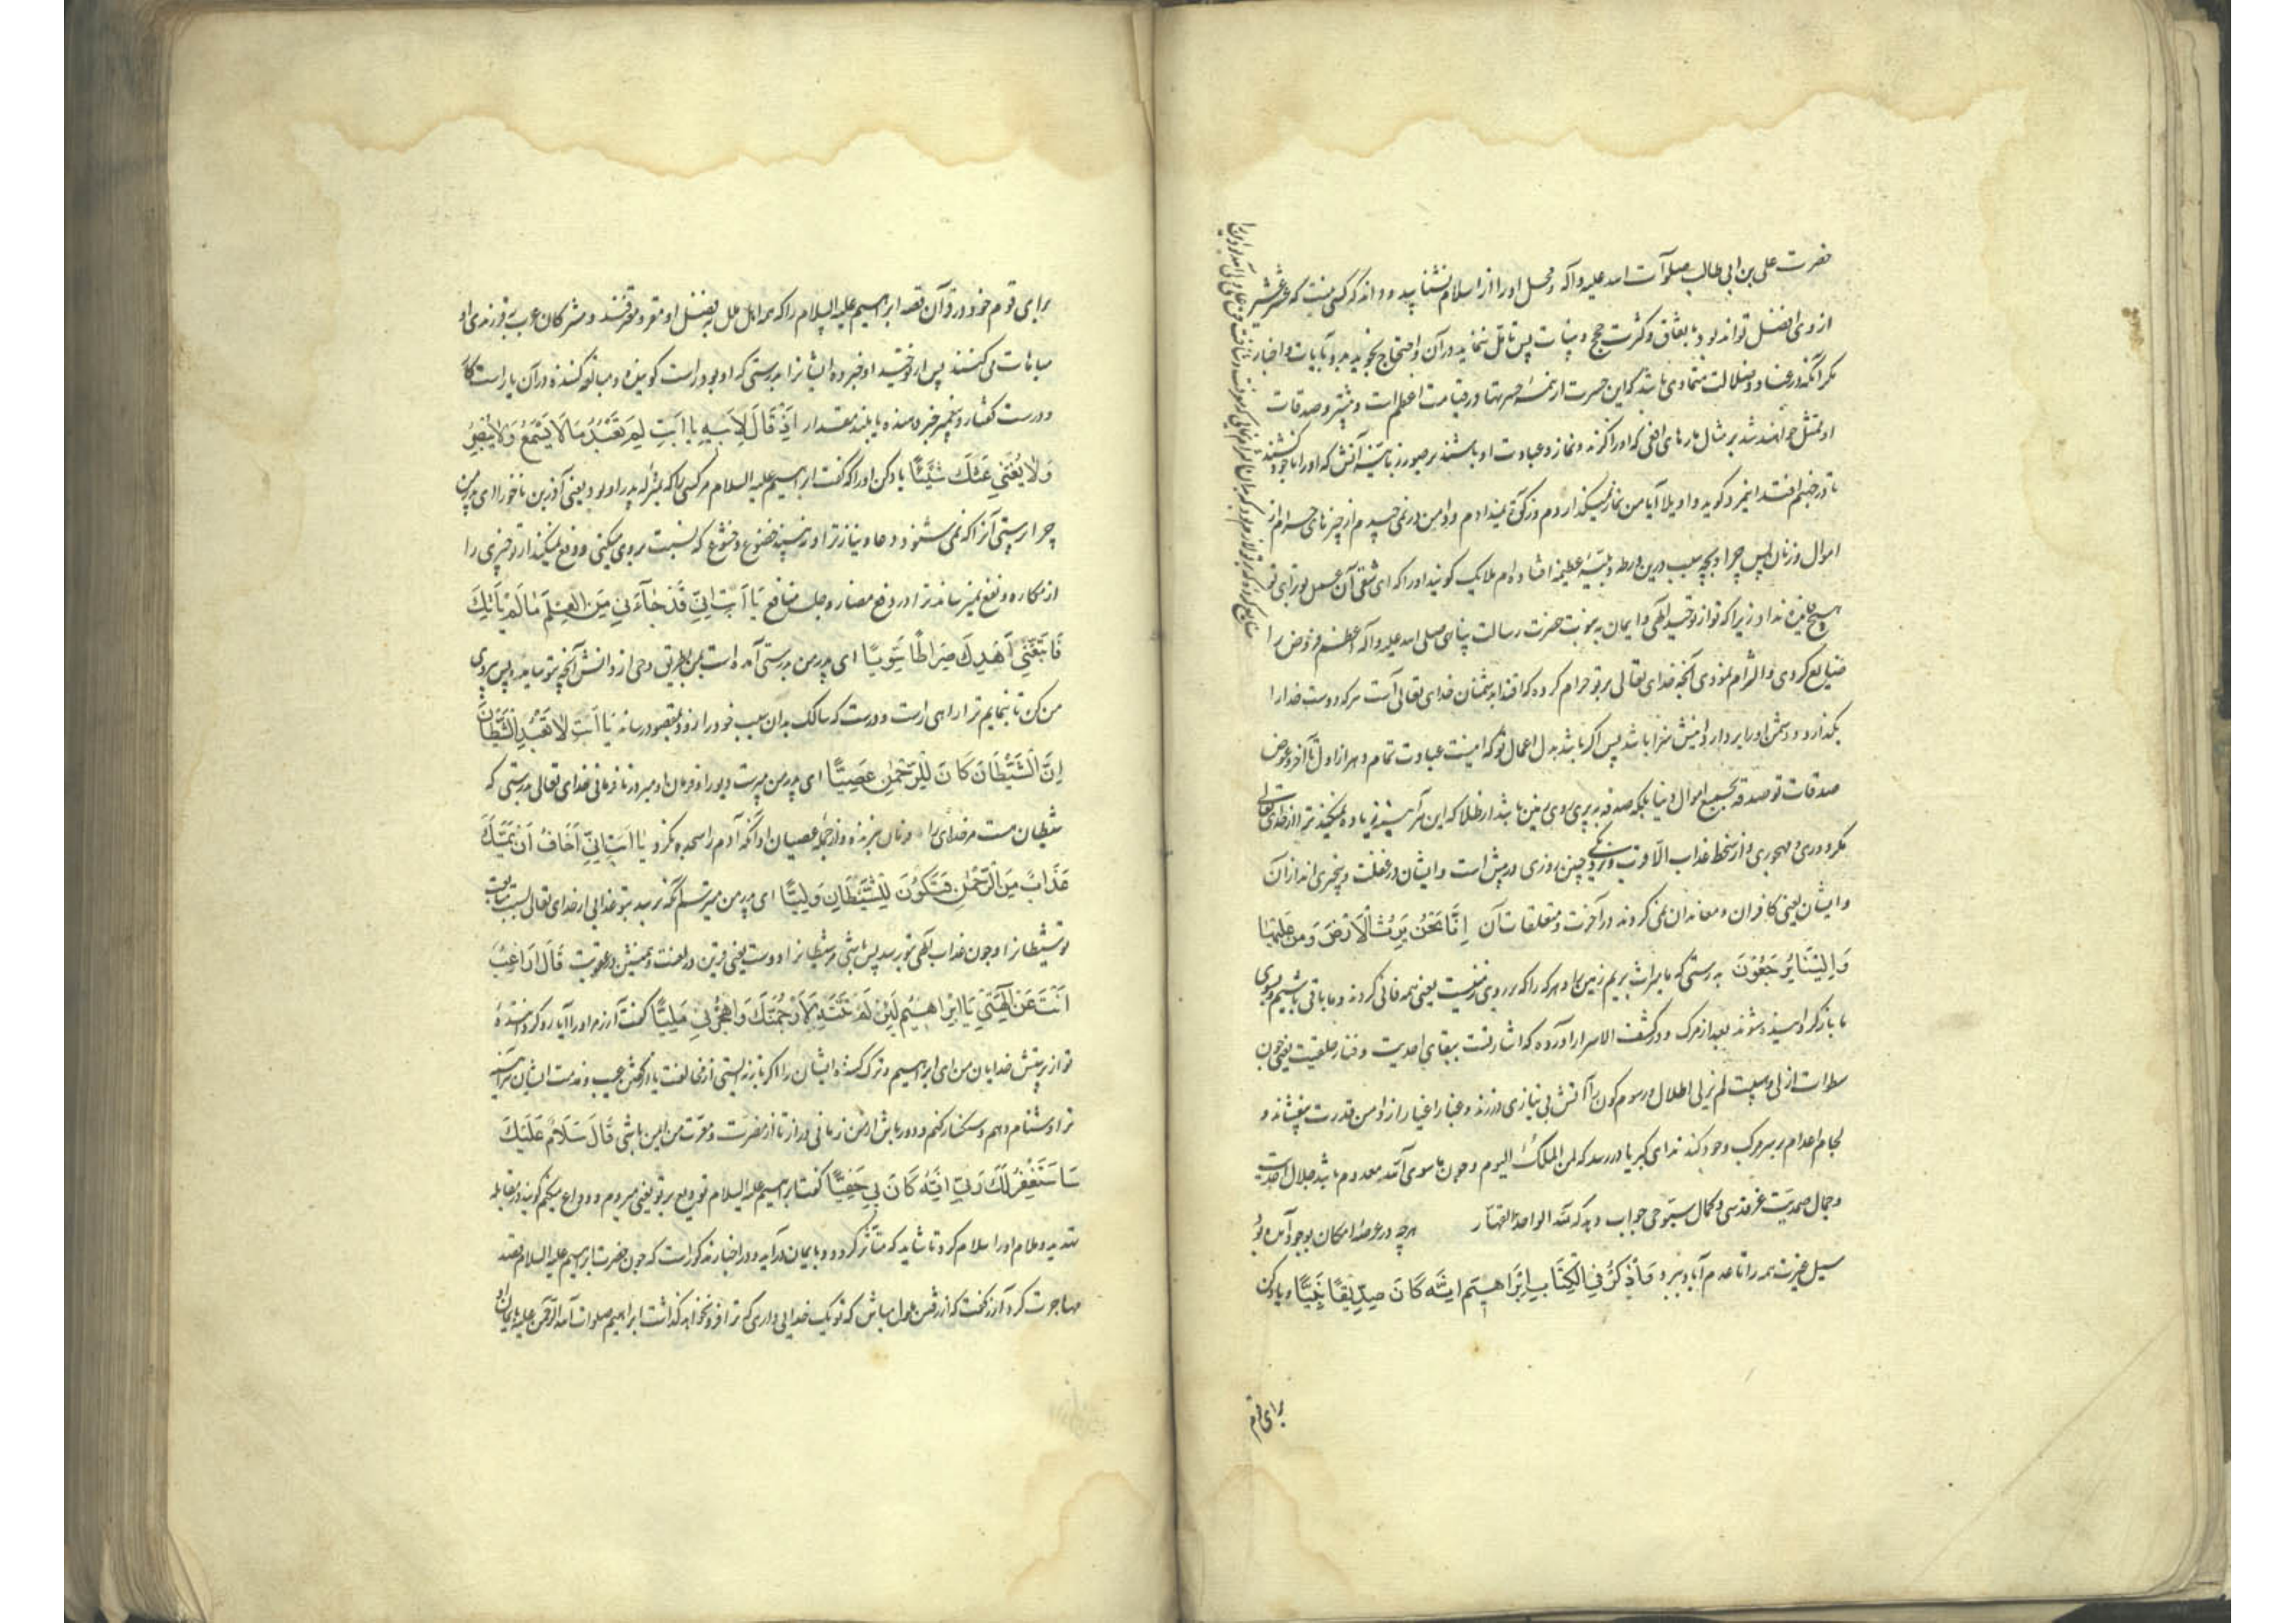 حضرت علی بن ابی طالب صلوات الله علیه وآله و محل اورا از اسلام نشناسد و داند که کسی نیست که عشر عشیر
از وی افضل تواند بود بعثاق وکثرت حج و بینات پس تامل ننماید در آن و احتجاج نجوید بر و بآیات و اخبار
مکر آنکه در عناد و ضلالت متمادی باشد که این حسرت از همه حسرتها در قیامت اعظم است و بیشتر و صدقات
او متمثل خواهند شد بر مثال مارهای افعی که اورا کزند و نماز و عبادت او باشند بر صورت زبانیه آتش که اورا
تا در جهنم افتد این مرد کوید واویلا آیا من نماز نمیکذاردم و زکوة نمیدادم و دامن در نمی چیدم از چیزهای حرام از
اموال و زنان پس چرا و بچه سبب درین ورطه و بلیه عظیمه افتاده ام ملایک کویند اورا که ای شقی آن عمل تو برای تو
هیچ فایده نداد زیرا که تو از توحید الهی و ایمان به نبوت حضرت رسالت پناهی صلی الله علیه وآله اعظم فروض را
ضایع کردی و التزام نمودی آنچه خدای تعالی بر تو حرام کرده که اقتدا بدشمنان خدای تعالی است هرکه دوست خدارا
بکذارد و دشمن اورا بردارد اینش سزا باشد پس اکر باشد بدل اعمال تو که اینست عبادت تمام دهر از اول تا آخر و عوض
صدقات تو صدقه بجمیع اموال دنیا بلکه صدقه بپری روی زمین باشد از طلا که این هر آینه زیاده نمیکند ترا از خدای تعالی
مکر دوری و مهجوری و از سخط عذاب الا قرب و نزدیکی چنین روزی در پیش است و ایشان در غفلت و بیخبری اند از آن
و ایشان یعنی کافران و معاندان نمی کروند در آخرت و متعلقات آن اِنَّا نَحْنُ نَرِثُ الْاَرْضَ وَمَنْ عَلَیْهَا
وَاِلَیْنَا یُرْجَعُوْنَ بدرستی که ما میراث بریم زمین را و هرکه را که بر روی زمینست یعنی همه فانی کردند و ما باقی باشیم و بسوی
ما بازکردانیده شوند بعد از مرک و در کشف الاسرار آورده که اشارتست ببقای احدیت و فناء خلقیت یعنی چون
سطوات ازلی و سبت لم یزلی اطلال و رسوم کون را آتش بی نیازی در زند و غبار اغیار از دامن قدرت بیفشاند و
لجام اعدام بر سر مرکب وجود کند ندای کبریا در رسد که لمن الملک الیوم و چون ما سوی الله معدوم باشد جلال احدیت
و جمال صمدیت عز قدسی و کمال سبوحی جواب دهد که لله الواحد القهار هرچه در عرصه امکان بوجود آمده بود
سیل عزت همه را تا عدم آباد ببرد وَاذْکُرْ فِی الْکِتَابِ اِبْرَاهِیْمَ اِنَّهُ کَانَ صِدِّیْقًا نَبِیًّا و یاد کن
برای قوم
برای قوم خود در قرآن قصه ابراهیم علیه السلام را که همه اهل ملل بفضل او مقر و معترفند و مشرکان عرب بفرزندی او
مباهات می کنند پس از توحید او خبر ده ایشانرا بدرستی که او بود راست کوینده و مبالغه کننده در آن یا راست کار
و درست کفتار و پیغمبر خبر دهنده یا بلند مقدار اِذْ قَالَ لِاَبِیْهِ یَا اَبَتِ لِمَ تَعْبُدُ مَا لَا یَسْمَعُ وَلَا یُبْصِرُ
وَلَا یُغْنِیْ عَنْكَ شَیْئًا یاد کن اورا که کفت ابراهیم علیه السلام مر کسی را که بمنزله پدر او بود یعنی آذر بن ناخور ای پدر من
چرا پرستی آنرا که نمی شنود دعا و نیاز ترا و نه بیند خضوع و خشوع که نسبت بروی میکنی و دفع نمیکند از تو چیزی را
از مکاره و نفع نمیرساند ترا در دفع مضار و جلب منافع یَا اَبَتِ اِنِّیْ قَدْ جَاءَنِیْ مِنَ الْعِلْمِ مَا لَمْ یَاْتِكَ
فَاتَّبِعْنِیْ اَهْدِكَ صِرَاطًا سَوِیًّا ای پدر من بدرستی آمده است بمن بطریق وحی از دانش آنچه بتو نیامده پس پیروی
من کن تا بنمایم ترا راهی راست و درست که سالک بدان سبب خود را زود بمقصود رساند یَا اَبَتِ لَا تَعْبُدِ الشَّیْطَانَ
اِنَّ الشَّیْطَانَ کَانَ لِلرَّحْمٰنِ عَصِیًّا ای پدر من مپرست دیو را و فرمان او مبر در نافرمانی خدای تعالی بدرستی که
شیطان هست مر خدای را نافرمان برنده و از جمله عصیان او آنکه آدم را سجده نکرد یَا اَبَتِ اِنِّیْ اَخَافُ اَنْ یَمَسَّكَ
عَذَابٌ مِنَ الرَّحْمٰنِ فَتَکُوْنَ لِلشَّیْطَانِ وَلِیًّا ای پدر من میترسم آنکه برسد بتو عذابی از خدای تعالی بسبب متابعت
تو شیطانرا و چون عذاب الهی بتو برسد پس باشی مر شیطانرا دوست یعنی قرین در لعنت و همنشین در عقوبت قَالَ اَرَاغِبٌ
اَنْتَ عَنْ اٰلِهَتِیْ یَا اِبْرَاهِیْمُ لَئِنْ لَمْ تَنْتَهِ لَاَرْجُمَنَّكَ وَاهْجُرْنِیْ مَلِیًّا کفت آزر مر اورا آیا رو کردانیده
تو از پرستش خدایان من ای ابراهیم و ترک کننده ایشان را اکر باز نه ایستی از مخالفت یا از کفتن عیب و مذمت ایشان هر آینه
ترا دشنام دهم و سنکسار کنم و دور باش از من زمانی دراز تا از مضرت و معرت من ایمن باشی قَالَ سَلَامٌ عَلَیْكَ
سَاَسْتَغْفِرُ لَكَ رَبِّیْ اِنَّهُ کَانَ بِیْ حَفِیًّا کفت ابراهیم علیه السلام تودیع بر تو یعنی میروم و وداع میکنم کویند در مقابله
تهدید و ملام اورا سلام کرد تا شاید که متأثر کردد و بایمان درآید و در اخبار مذکور است که چون حضرت ابراهیم علیه السلام قصد
مهاجرت کرد آزر کفت که از رفتن ملول مباش که تو نیک خدایی داری که ترا فرو نخواهد کذاشت ابراهیم صلوات الله الرحمن علیه